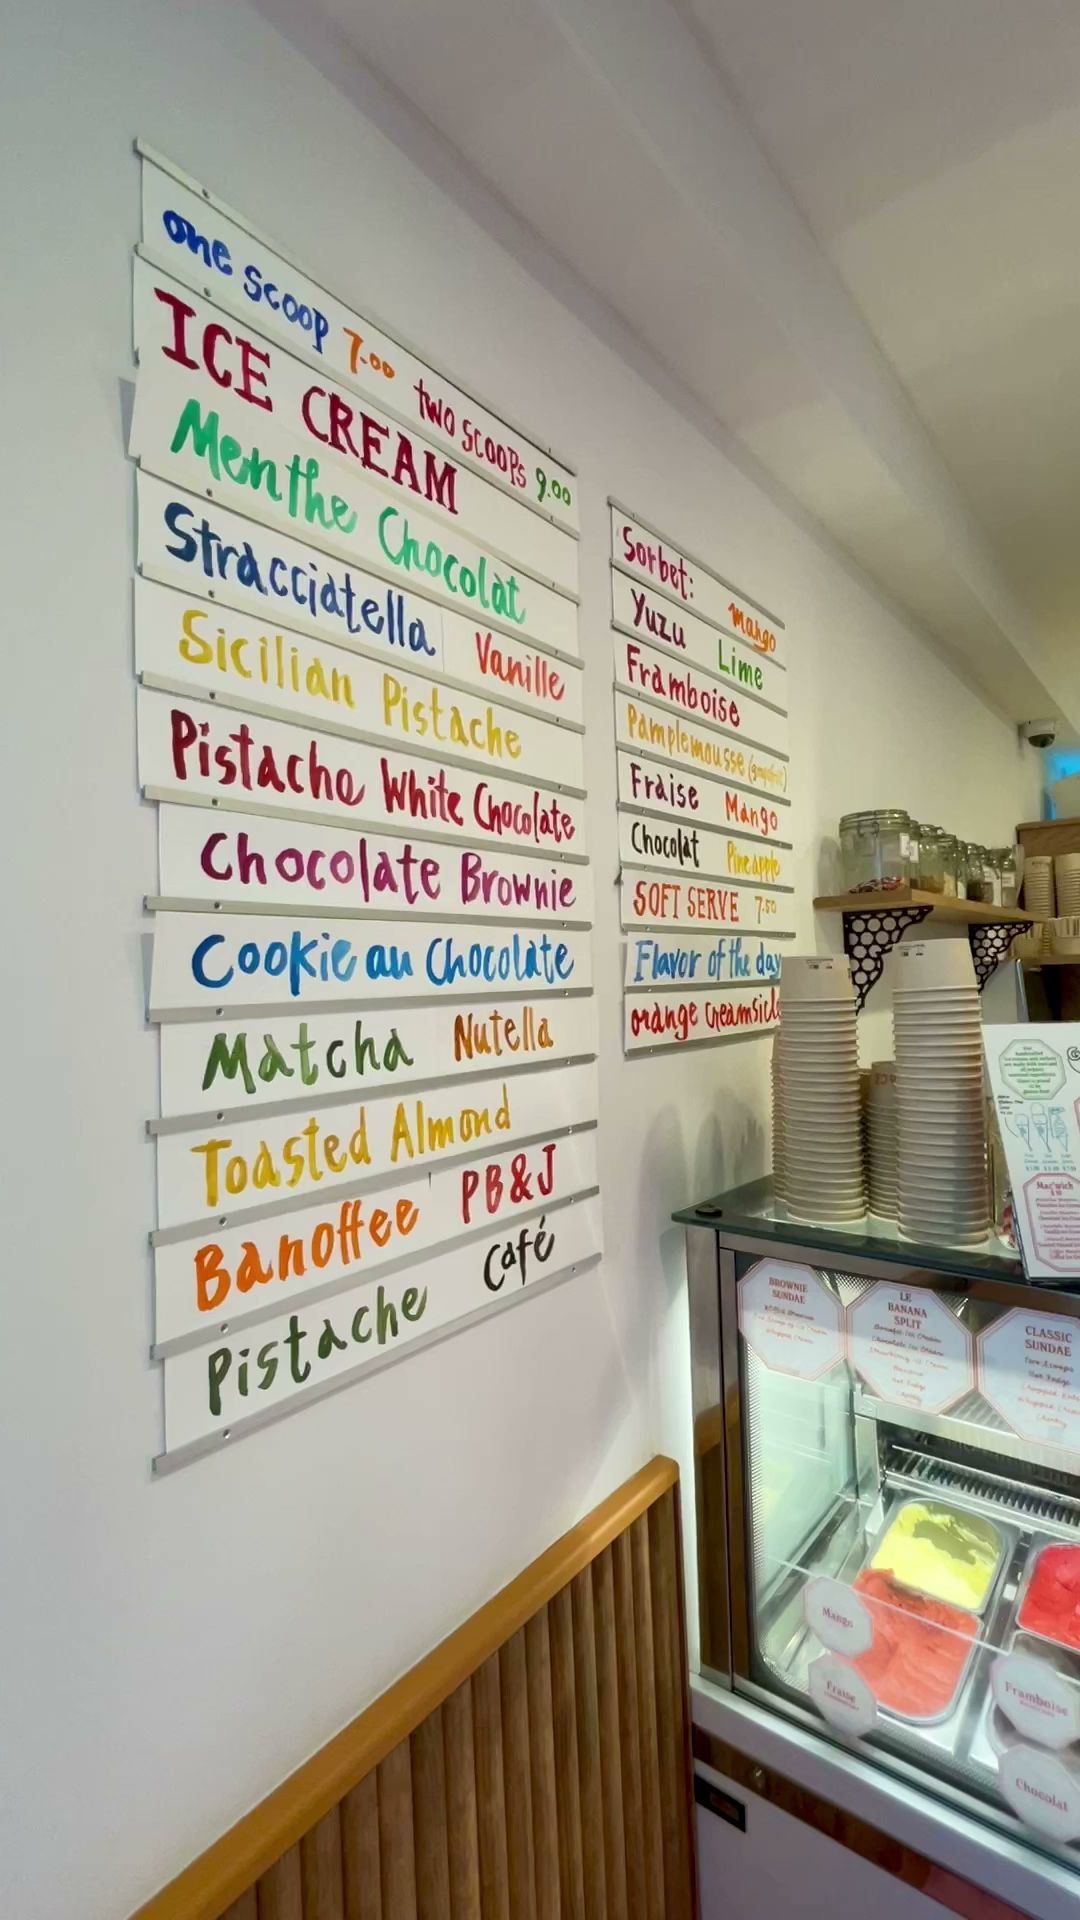 one scoop 7.00 two scoops 9.00
ICE CREAM
Menthe Chocolat
Stracciatella Vanille
Sicilian Pistache
Pistache White Chocolate
Chocolate Brownie
Cookie au Chocolate
Matcha Nutella
Toasted Almond
Banoffee PB&J
Pistache Café
Sorbet: Mango
Yuzu Lime
Framboise
Pamplemousse (grapefruit)
Fraise Mango
Chocolat Pineapple
SOFT SERVE 7.50
Flavor of the day
orange creamsicle
BROWNIE
SUNDAE
LE
BANANA
SPLIT
Chocolate Ice Cream
Strawberry Ice Cream
Hot Fudge
CLASSIC
SUNDAE
Two Scoops
Hot Fudge
Mango
Fraise
Framboise
Chocolat